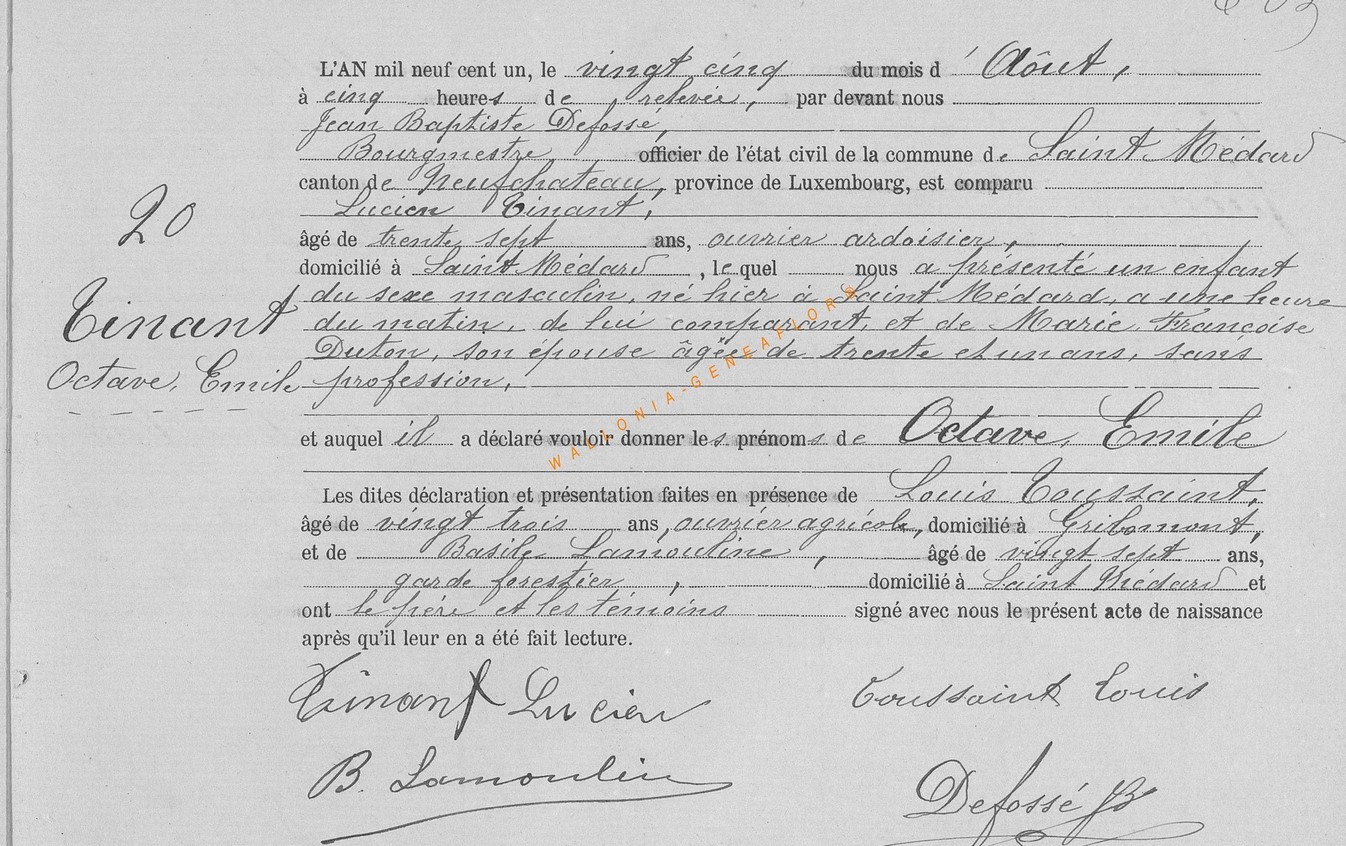 L'AN mil neuf cent un, le vingt cinq du mois d' Aôut,
à cinq heures de relevée, par devant nous
Jean Baptiste Defossé,
Bourgmestre officier de l'état civil de la commune de Saint Médard
canton de Neufchateau, province de Luxembourg, est comparu
Lucien Tinant,
20
âgé de trente sept ans, ouvrier ardoisier,
domicilié à Saint Médard, lequel nous a présenté un enfant
du sexe masculin, né hier à Saint Médard, a une heure
Tinant
du matin, de lui comparant, et de Marie, Françoise
Duton, son épouse âgée de trente et un ans, sans
Octave, Emile
profession,
WALLONIA-GENEAFLORE
et auquel il a déclaré vouloir donner les prénoms de Octave, Emile
Les dites déclaration et présentation faites en présence de Louis Toussaint,
âgé de vingt trois ans, ouvrier agricole, domicilié à Gribomont,
et de Basile Lamouline, âgé de vingt sept ans,
garde forestier, domicilié à Saint Médard et
ont le père et les témoins signé avec nous le présent acte de naissance
après qu'il leur en a été fait lecture.
Tinant Lucien
Toussaint Louis
B. Lamoulin
Defossé JB